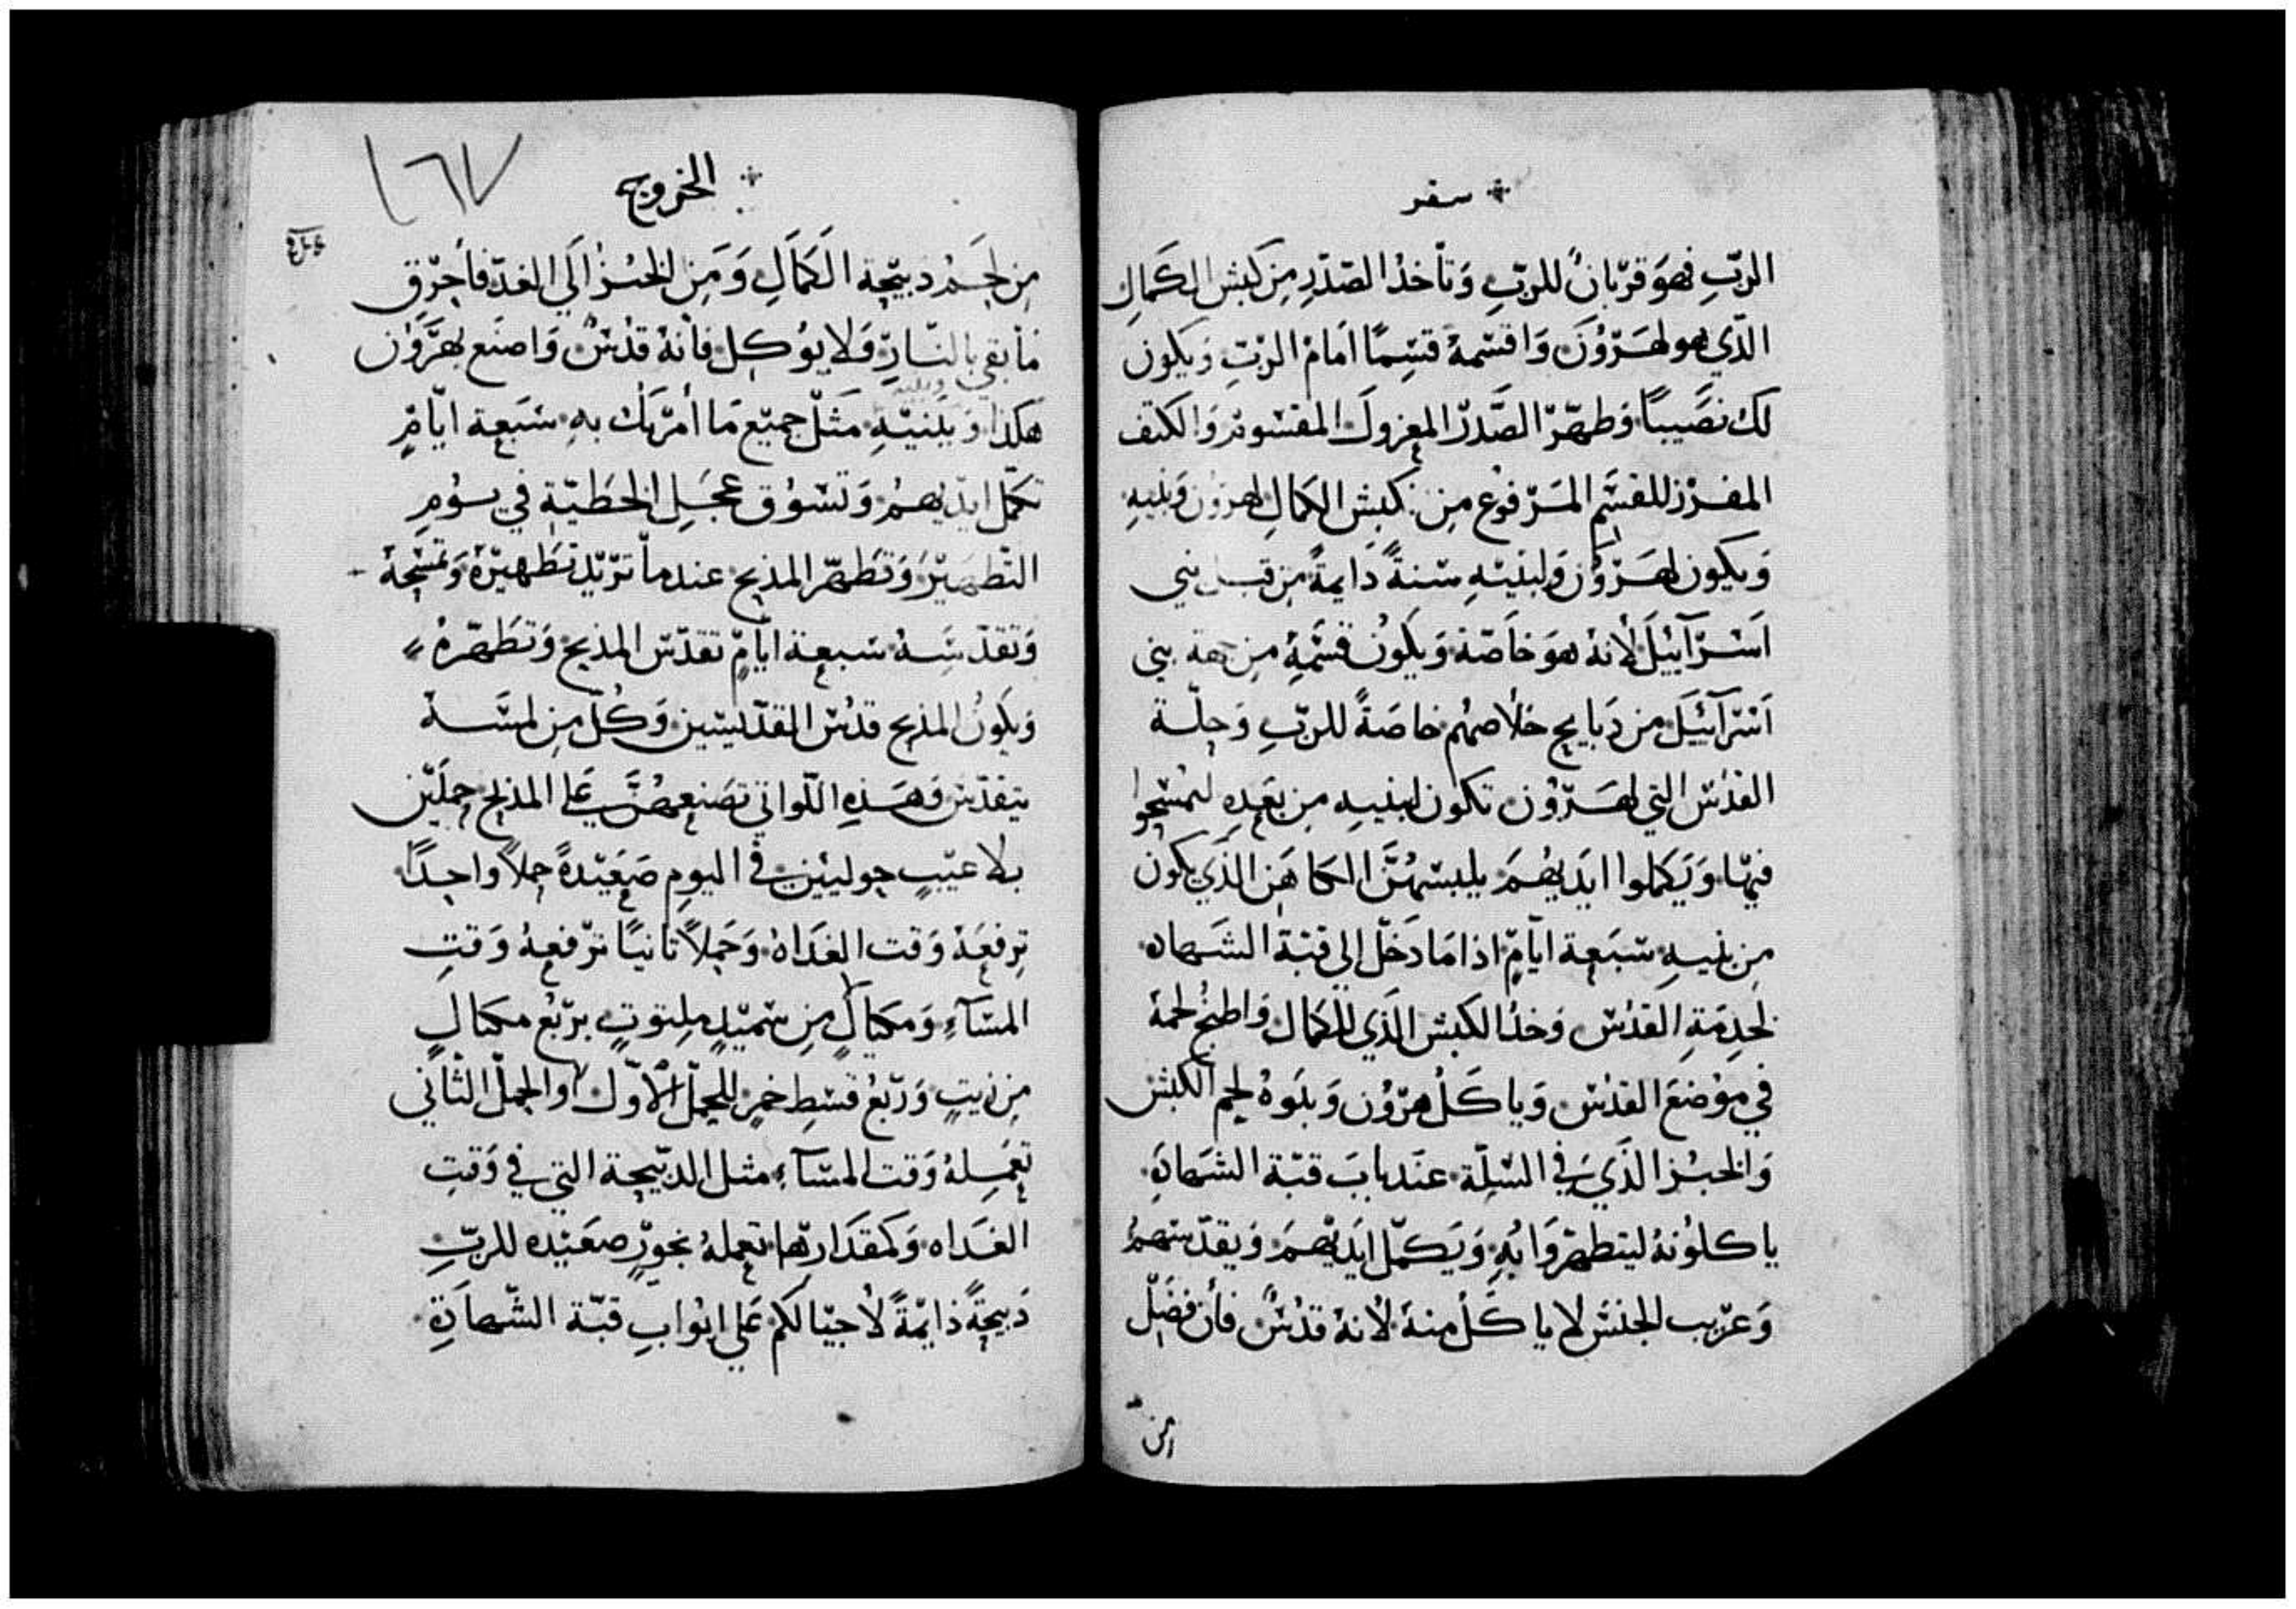 سفر
الربِّ فهوَ قربانٌ للربِّ وَتأخذ الصّدرِ مِن كبش الكَمالِ
الذّي هو لهَرّوُنَ وَاقسّمهُ قسِمًا امَامَ الربِّ وَيكون
لكَ نصَيباً وَطهّرّ الصَّدرّ المعزولَ المقسُومَ وَالكتف
المفرز للقسَّم المَرّفوُع مِن كبش الكمالِ لهرون وَبنيهِ
وَيكون لهَرّوُن وَلبنيّهِ سنةً دَايمةً مِن قبل بني
اَسّرآييَلَ لأنهُ هوَ خاَصّة وَيكوُن قسّمُهُ مِن جهة بني
اَسّرآئيَلَ من دَبايح خلاصهُم خاصَةً للربِّ وَحلّة
القدُس التي لهَرّوُن تكون لبنيهِ مِن بعَدِهِ ليمُسّحوا
فيهّا وَيَكملوا ايدَيهُمَ يلبسّهُنَّ الكاهَن الذّي يكون
مِن بنيهِ سّبَعة ايّامٍ اذامَا دَخَلّ الي قبّة الشَهاده
لخدِمَةِ القدُس وَخدُ الكبش الّذَي للكمَال وَاطبخُ لحمهُ
في موُضعَ القدُس وَياكَلُ هرّوُن وَبنوهُ لحم الكبش
وَالخبُز الذَي في السّلِّة عنَد بابَ قبّة الشهَادَةِ
ياكلوُنهُ ليتطهرّوَا بُهِ وَيَكمّل ايَديْهمَ وَيقدّسَهمُ
وَغرّيب الجنسَ لا ياكَلُ منهُ لأنهُ قدُسٌ فأن فضَلّ
من
الخروج
١٦٧
مِن لحَمُ دبيّحة الَكمَالِ وَمَن الخبُز الَي الغدّ فأحرّق
مَابقي بالنّارِ وَلايوُكل فأنهُ قدُسٌ وَاصنَع لهَرّوَن
هكذا وَبَنيّهِ مَثَلّ جميّع مَا أمرّتك بهِ سَبَعة ايّامٍ
تكمَّل ايدّيهمُ وَتسُوُق عجَلِ الخطَيّة في يوُمِ
التّطهيّرَ وَتطَهّر المذبح عندماّ ترّيّد تَطَهيّرهُ وَتمسّحهُ
وَتقدّسَهُ سَبعة ايامٍّ تقدّس المذبح وَتطَهّرهُ
وَيكوَنُ المذبح قدُس القدّيسين وَكُلّ مِن لمسَهُ
يتقدّس وَهَذِهِ اللّواتي تصَنعهُنَّ عَلي المذبح حمَليّن
بلا عيّبٍ حوليّن في اليومِ صَعيَدةً حملاً واحدًا
ترِفعَهُ وَقت الغَدَاهُ وَحَملاً ثانياً ترّفعهُ وَقتِ
المسّآءِ وَمكيَالٍ مِن سّميّدٍ ملِتوتٍ برّبُعَ مكيَالٍ
مِن زيتٍ وَرّبُعَ قسّطِ خمرٍ للحمَلّ الأوّل وَالحملَّ الثّاني
تعَمِلهُ وَقت المسّآءِ مثل الدبّيحة التي في وَقتِ
الغَدَاه وَكمقدَارِهّا تعملهُ بخورّ صعَيده للربِّ
دَبيحةً دَايمّةً لأحيّالكم عَلي ابوَابِ قبّة الشّهاَدَةِ